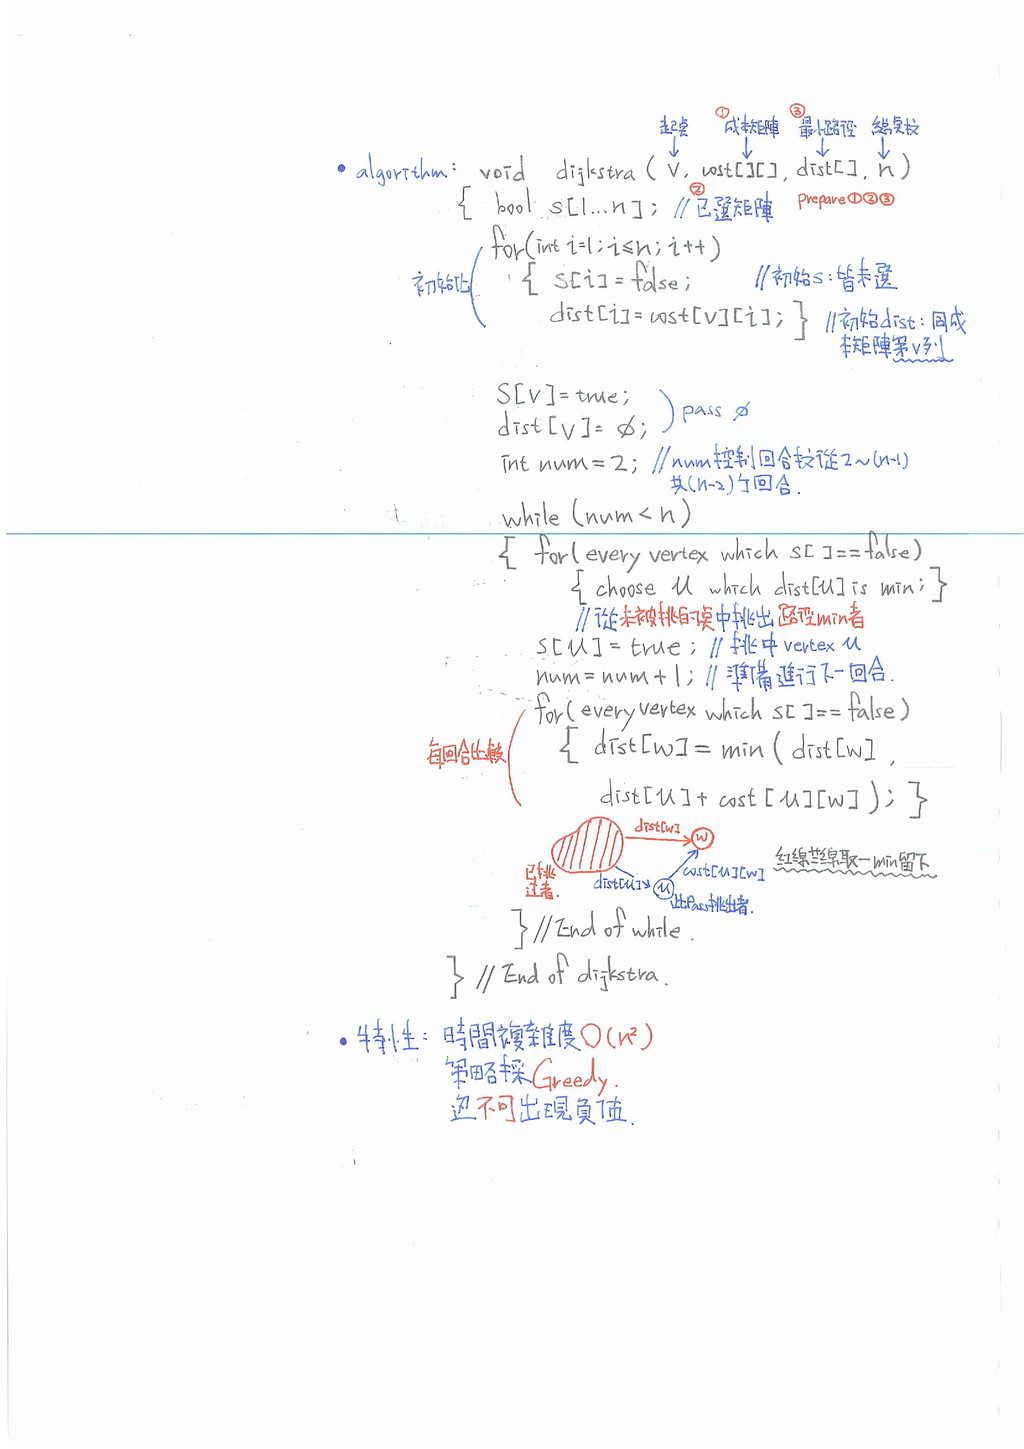 起點 ①成本矩陣 ③最小路徑 總點數
• algorithm: void dijkstra (v, cost[][], dist[], n)
{ bool s[1...n]; //②已選矩陣 prepare①②③
for(int i=1; i≤n; i++)
初始化 { s[i]=false; //初始s:皆未選
dist[i]=cost[v][i]; } //初始dist:同成
本矩陣第v列
S[v]=true;
dist[v]=∅; ) pass ∅
int num=2; //num控制回合數從2~(n-1)
共(n-2)个回合.
while (num<n)
{ for(every vertex which s[ ]==false)
{ choose u which dist[u] is min; }
//從未被挑的點中挑出路徑min者
s[u]=true; //挑中vertex u
num=num+1; //準備進行下一回合.
for(every vertex which s[ ]==false)
每回合比較 { dist[w]=min(dist[w],
dist[u]+cost[u][w]); }
dist[w] w
紅線藍線取一min留下
已挑
過者.
dist[u] u cost[u][w]
此Pass挑出者.
} //End of while.
} //End of dijkstra.
• 特性: 時間複雜度O(n²)
策略採Greedy.
邊不可出現負值.